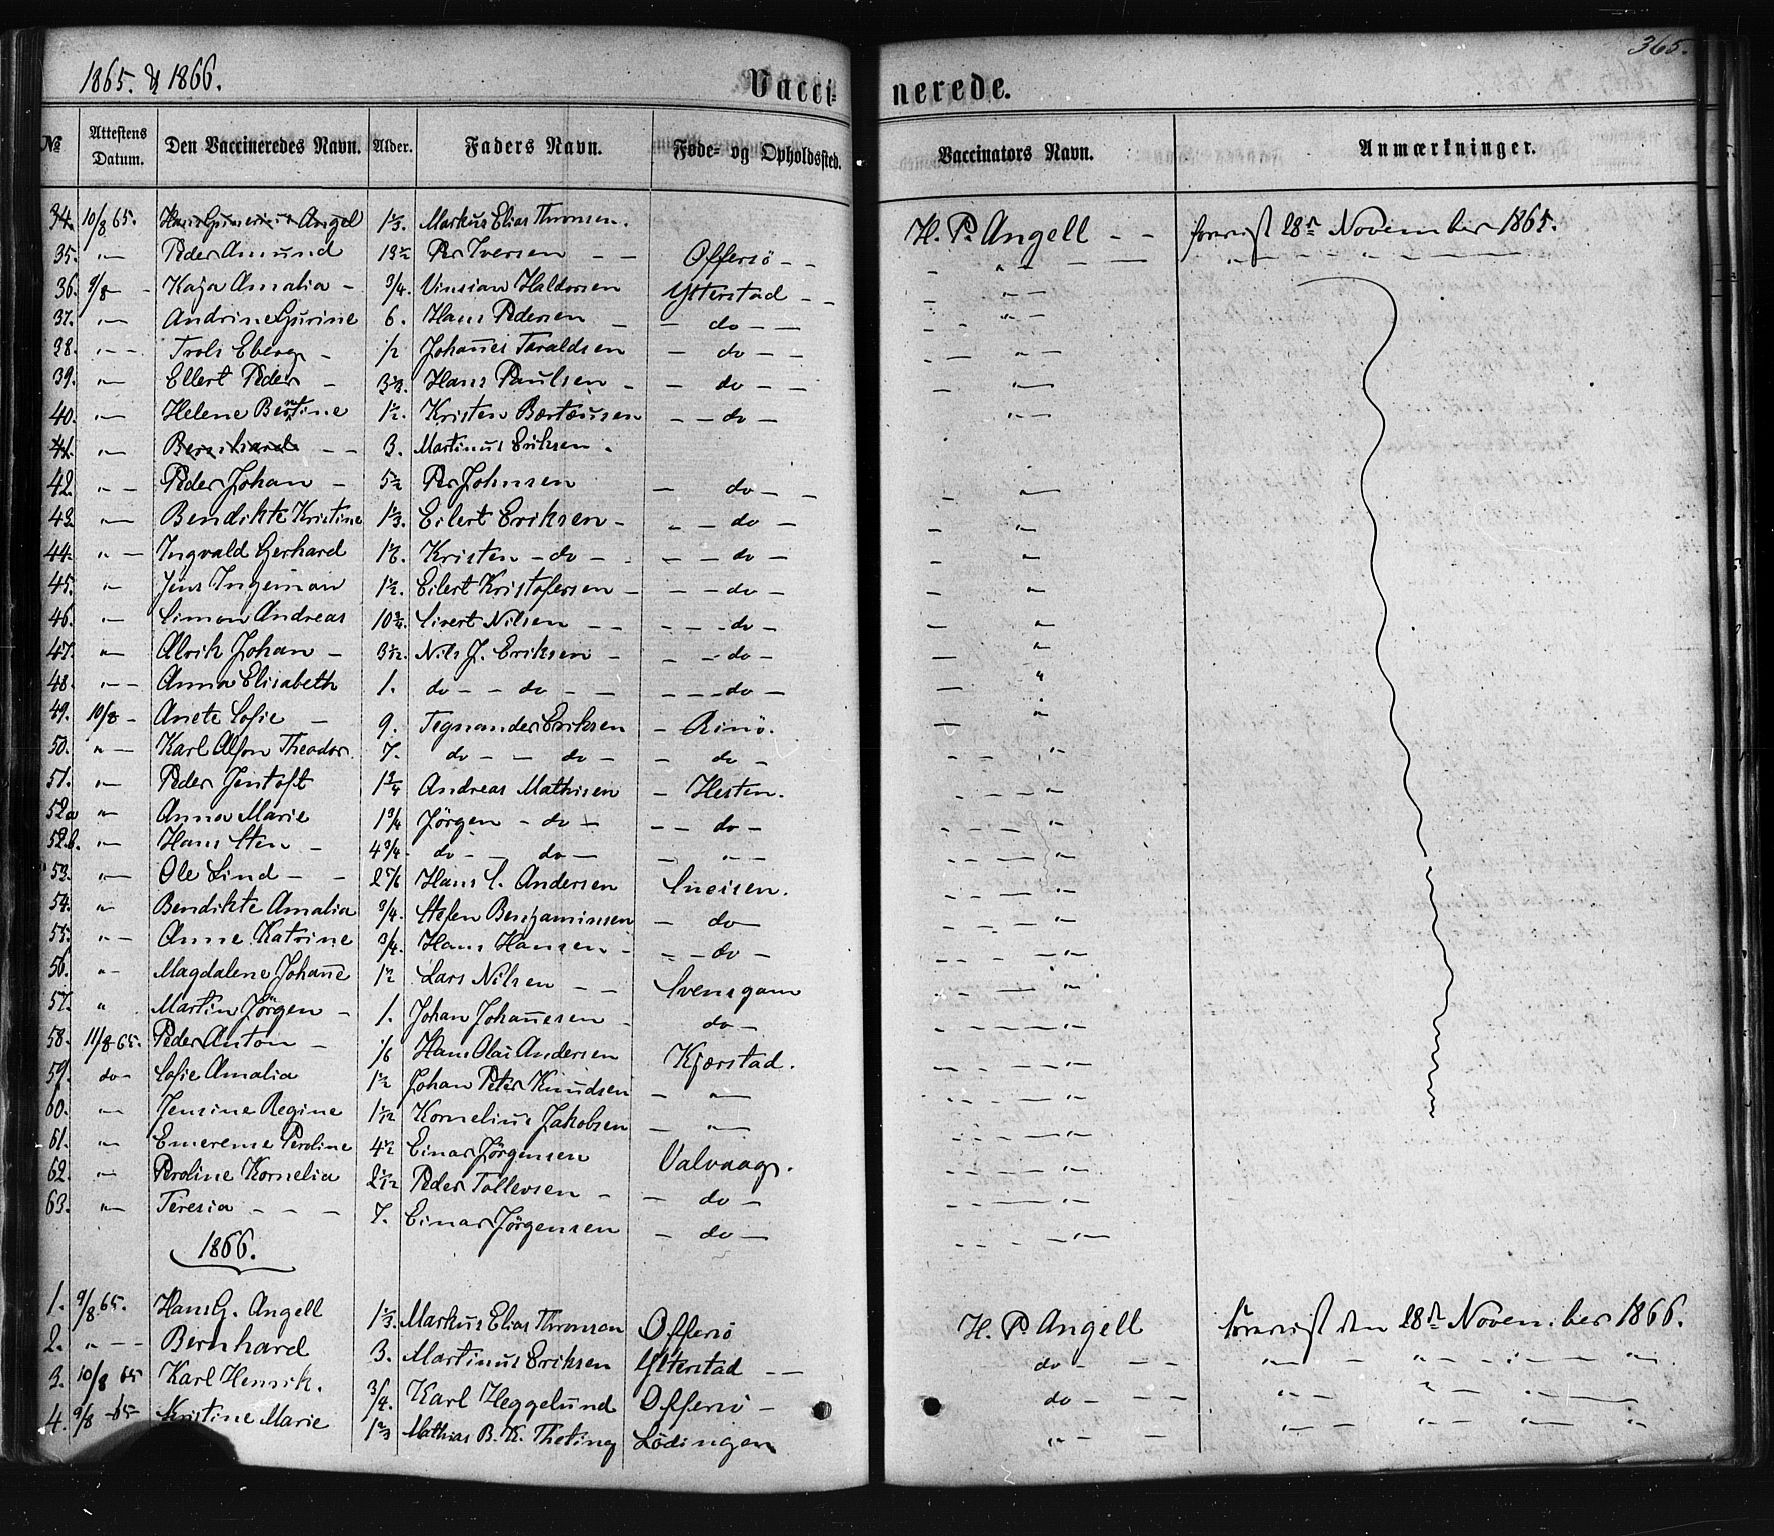 365.
1865. & 1866. Vacci- nerede.
No Attestens Datum. Den Vaccineredes Navn. Alder. Faders Navn. Føde- og Opholdssted. Vaccinators Navn. Anmærkninger.
34. 10/8 65. Hans Gunerius Angel 1 1/3. Markus Elias Thronsen. H. P. Angell - - forevist 28de November 1865.
35. " Peder Amund 13 1/2 Per Iversen - - Offersö - - " "
36. 9/8 - Kaja Amalia - 3/4. Vinsian Haldorsen Ytterstad - - "
37. " Andrine Gurine 6. Hans Pedersen - - do - - "
38. " Trols Eberg - 1/2 Johannes Taraldsen - do - - "
39. " Ellert Peder - 3 2/3. Hans Paulsen - - do - - "
40. " Helene Berntine 1 1/2. Kristen Bærtæusen - - do - "
41. " Bernhard - - 3. Martinus Eriksen.
42. " Peder Johan - 5 1/2 Per Johnsen - do - - "
43. " Bendikte Kristine 1 1/3. Eilert Eriksen - - - do - "
44. " Ingvald Gerhard 1 1/6. Kristen - do - - - do - "
45. " Jens Ingeman 1 1/2. Eilert Kristofersen - - - do - "
46. " Simon Andreas 10 3/4. Sivert Nilsen - - - - do - "
47. " Alrik Johan - 3 1/12. Nils J. Eriksen - - - do - "
48. " Anna Elisabeth 1. do - - do - - - - - do - "
49. 10/8 - Anete Sofie - 9. Tegnander Eriksen - Rinö. "
50. " Karl Alfon Theodor. 7. do - - do - - do - "
51. " Peder Jentoft 1 3/4 Andreas Mathisen - Hesten. "
52a " Anna Marie 1 3/4 Jörgen - do - - - do - "
52.b. " Hans Sten - 4 3/4. do - - do - - " - "
53. " Ole Lind - - 2 5/6 Hans C. Andersen Sneisen. "
54. " Bendikte Amalia 3/4. Stefen Benjaminsen - do - "
55. " Anne Katrine 3/4. Hans Hansen - - - do - "
56. " Magdalene Johanne 1 1/2 Lars Nilsen - - Svensgam "
57. " Martin Jörgen - 1. Johan Johannesen - do - "
58. 11/8 65. Peder Anton - 1/6 Hans Olai Andersen Kjærstad. "
59. do - Sofie Amalia 1 1/2 Johan Peter Knudsen - " "
60. " Jensine Regine 1 1/12 Kornelius Jakobsen - " "
61. " Emerense Peroline 4 1/2 Einar Jörgensen Valvaag. "
62. " Peroline Kornelia 2 1/12 Peder Tollevsen - - do - "
63. " Teresia - - - 7. Einar Jörgensen - do - "
1866.
1. 9/8 65. Hans G. Angell 1 1/3. Markus Elias Thronsen Offersö H. P. Angell forevist den 28de November 1866.
2. " - - Bernhard 3. Martinus Eriksen Ytterstad - - do - - - " - " - " - "
3. 10/8 65 Karl Henrik. 3/4. Karl Heggelund Offersö - do - - - " - " - "
4. 9/8 - 65 Kristine Marie 1 2/3 Mathias B. K. Theting Lödingen " - - " - " - " - "